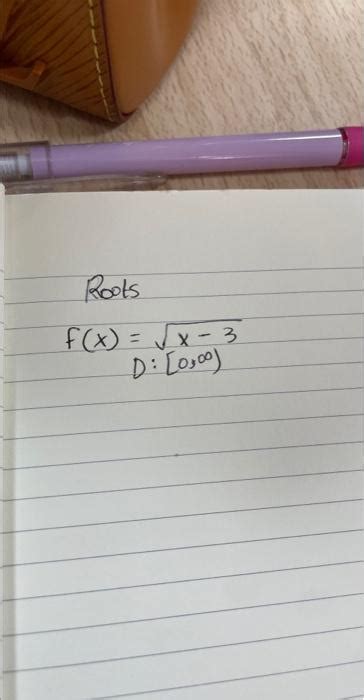 Roots
f(x) = √x - 3
D: [0,∞)